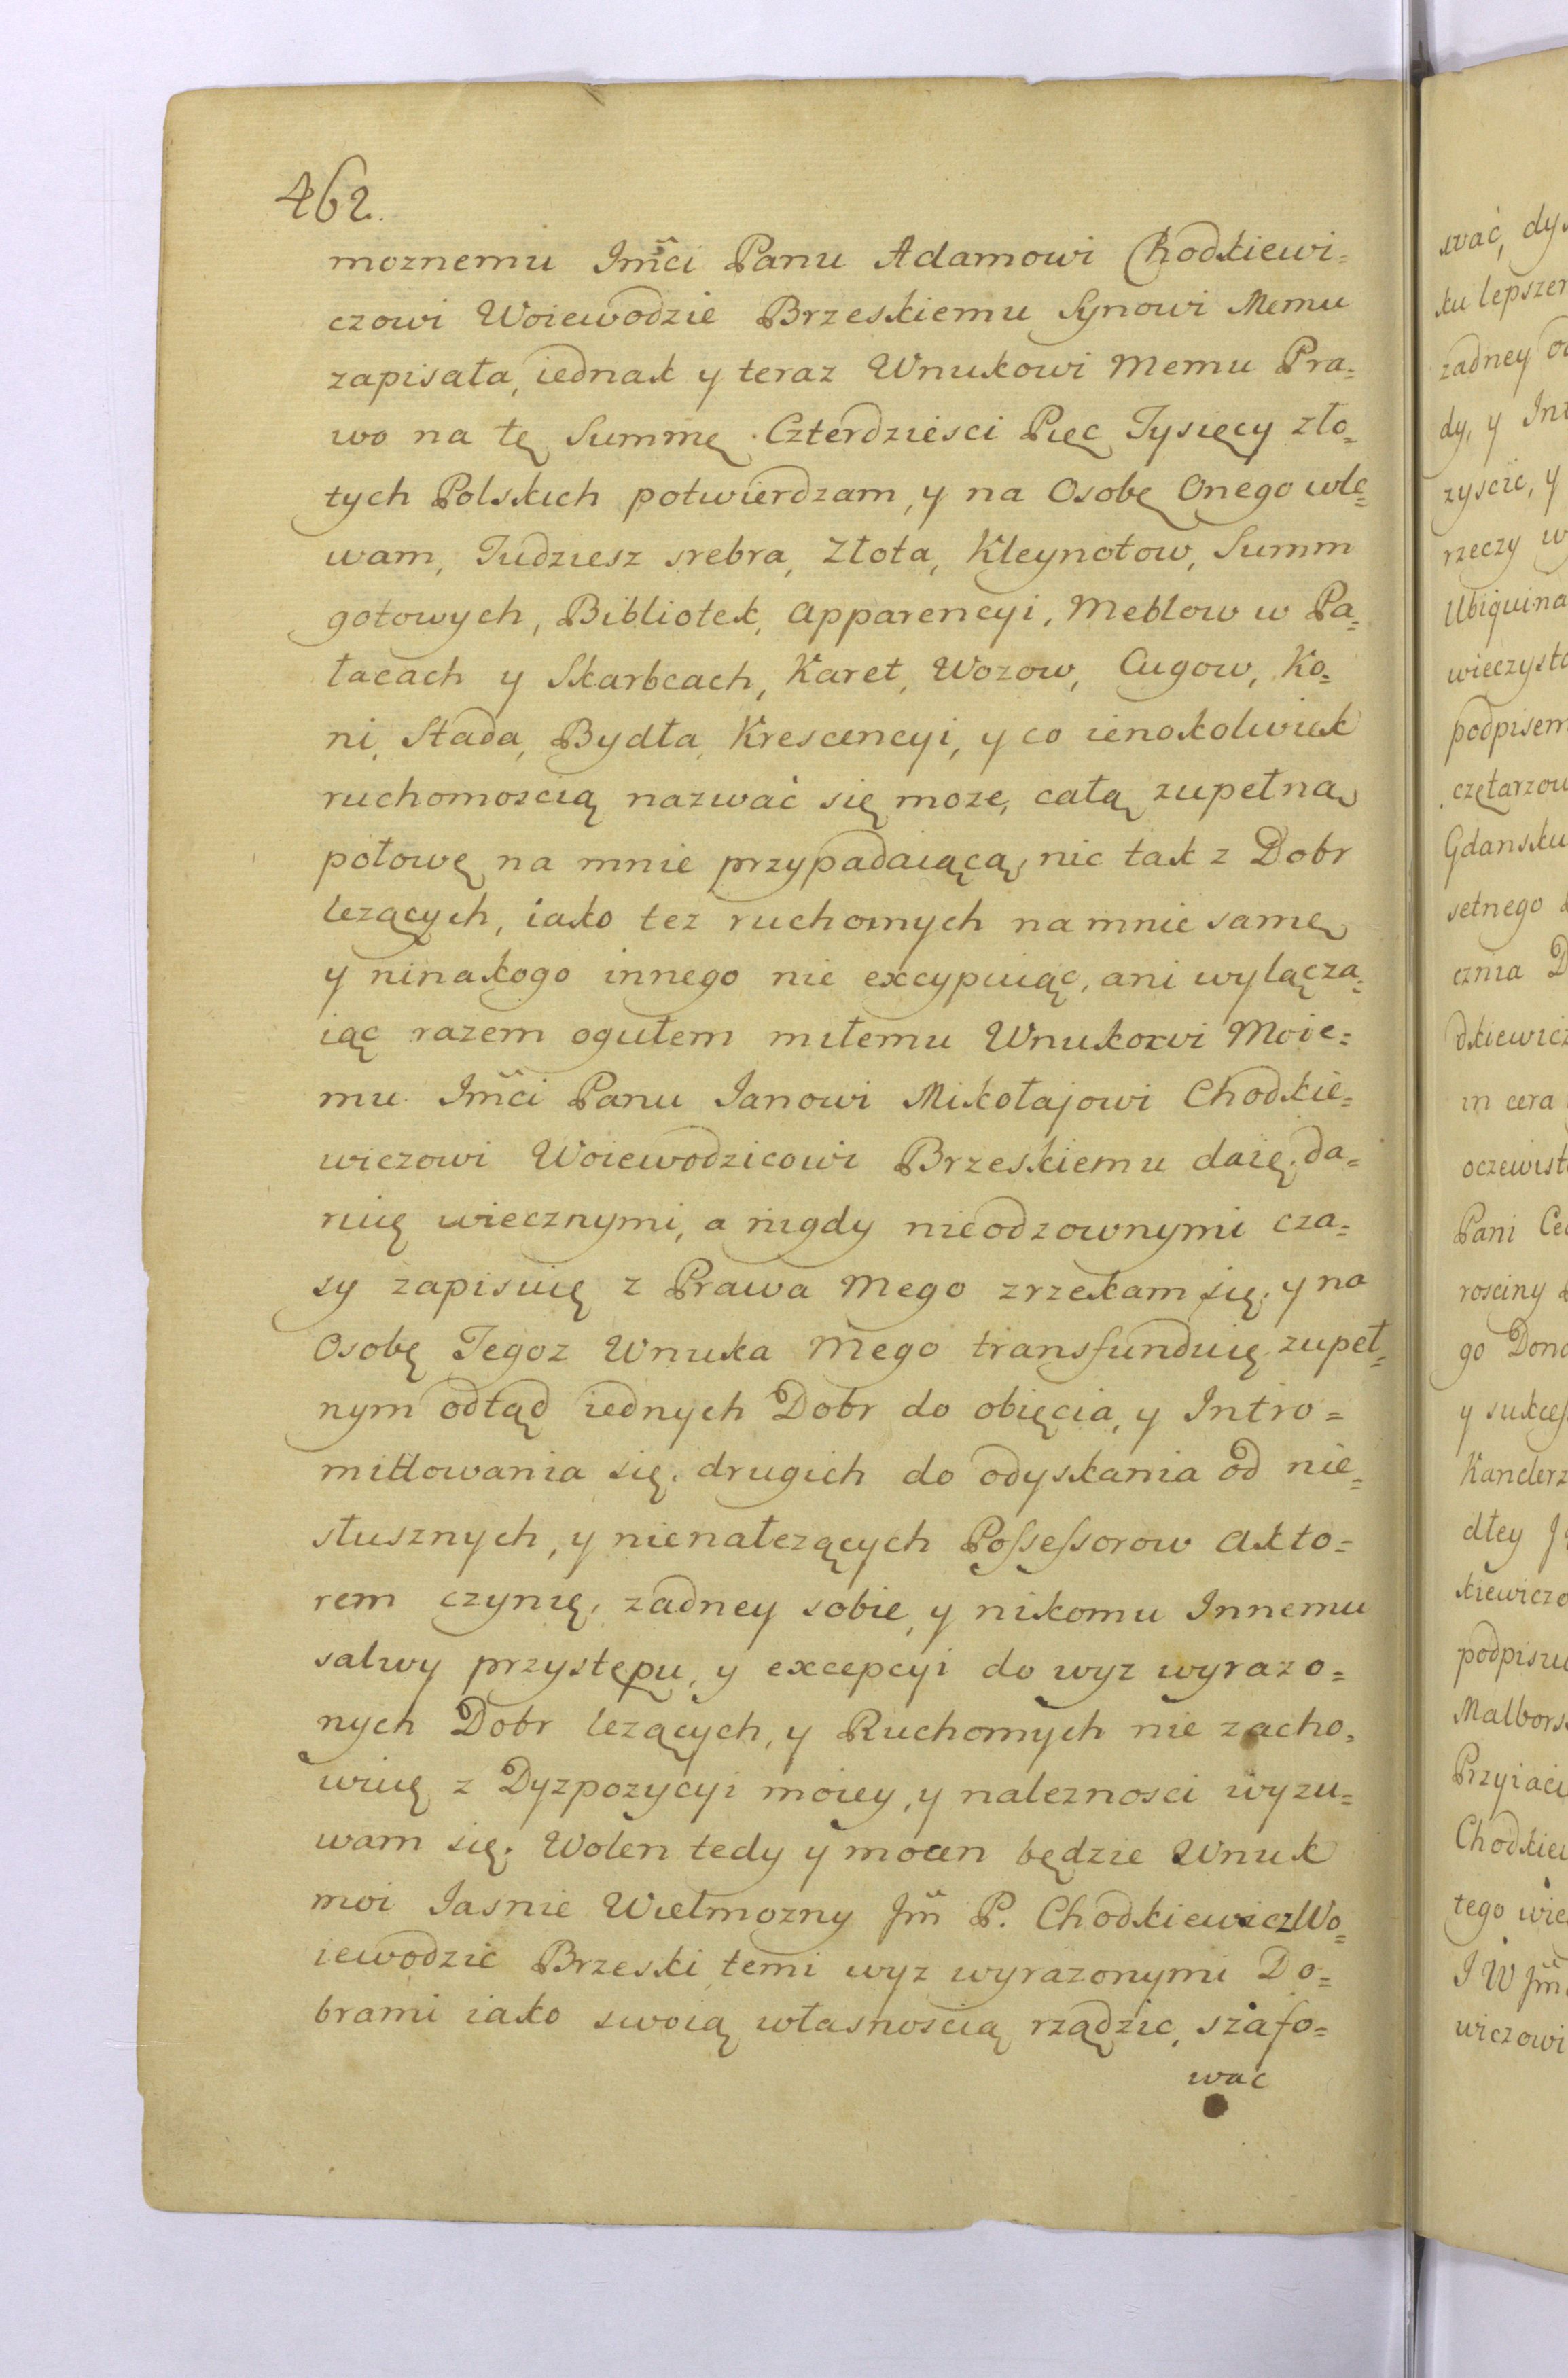 462.
moznemu Jmci Panu Adamowi Chodkiewi=
czowi Woiewodzie Brzeskiemu Synowi Memu
zapisała, iednak y teraz Wnukowi Memu Pra=
wo na tę Summę Czterdziesci Pięc Tysięcy zło=
tych Polskich potwierdzam, y na Osobę Onego wle=
wam, Tudziesz srebra, Złota, Kleynotow, Summ
gotowych, Bibliotek, Apparencyi, Meblow w Pa=
łacach y Skarbcach, Karet, Wozow, Cugow, Ko=
ni, Stada, Bydła, Krescencyi, y co ienokolwiek
ruchomoscią nazwać się moze, całą zupełną
połowę na mnie przypadaiącą, nic tak z Dobr
lezących, iako tez ruchomych na mnie samę
y ninakogo innego nie excypuiąc, ani wyłącza=
iąc razem ogułem miłemu Wnukowi Moie=
mu Jmci Panu Janowi Mikołajowi Chodkie=
wiczowi Woiewodzicowi Brzeskiemu daię, da=
ruię wiecznymi, a nigdy nieodzownymi cza=
sy zapisuię z Prawa Mego zrzekam się, y na
Osobę Tegoz Wnuka Mego transfunduię, zupeł=
nym odtąd iednych Dobr do obięcia, y Intro=
mittowania się, drugich do odyskania od nie=
słusznych, y nienalezących Possessorow Akto=
rem czynię, zadney sobie, y nikomu Innemu
salwy przystępu, y excepcyi do wyz wyrazo=
nych Dobr lezących, y Ruchomych nie zacho=
wuię z Dyzpozycyi moiey, y naleznosci wyzu=
wam się. Wolen tedy y mocen będzie Wnuk
moi Jasnie Wielmozny Jm P. Chodkiewicz Wo=
iewodzic Brzeski temi wyz wyrazonymi Do=
brami iako swoią własnoscią rządzic, szafo=
wac
wać, dys
ku lepszem
zadney
dy, y Int
zyscie, y
rzeczy
Ubiquina
wieczysta
podpisem
częтarzow
Gdansku
setnego
cznia D
dkiewicz
in cera
oczewist
Pani Ce
rosciny
go Dona
y sukcess
Kanclerz
dłey
kiewiczo
podpisu
Malbors
Przyiaci
Chodkiew
tego wie
J W Jm
wiczowi